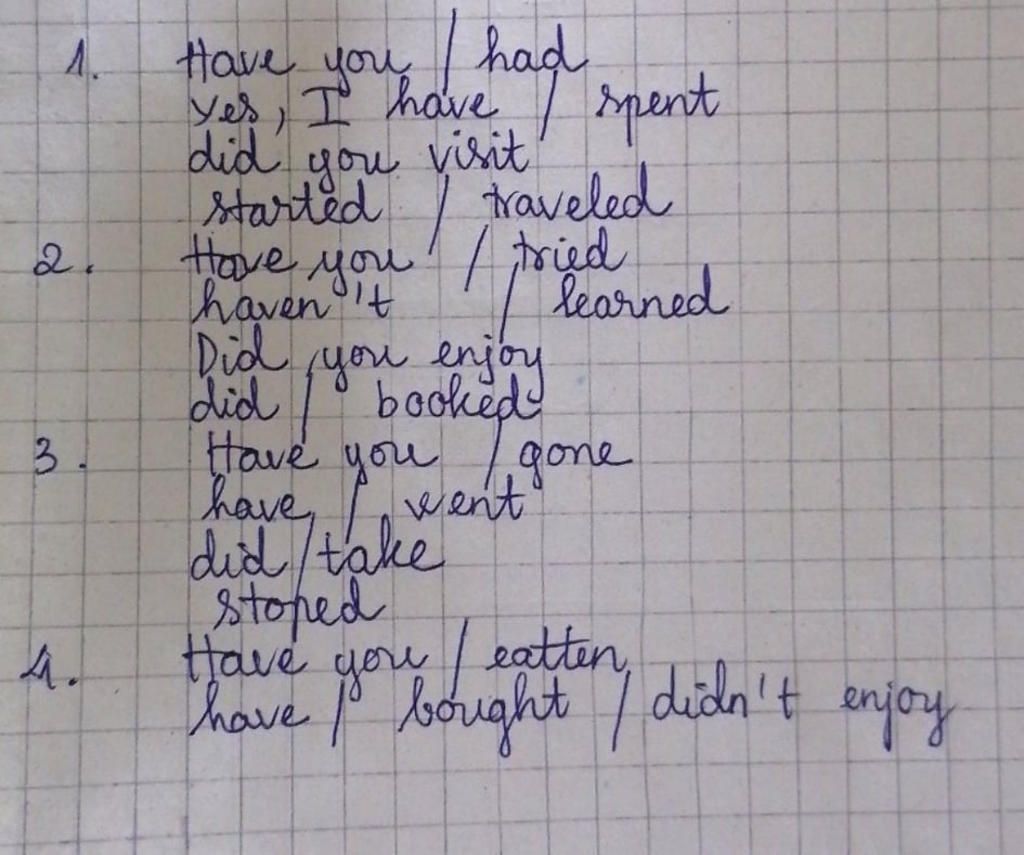 1. Have you / had
yes, I have / spent
did you visit
started / traveled
2. Have you / tried
haven't / learned
Did you enjoy
did / booked
3. Have you / gone
have / went
did / take
stoped
4. Have you / eatten
have / bought / didn't enjoy